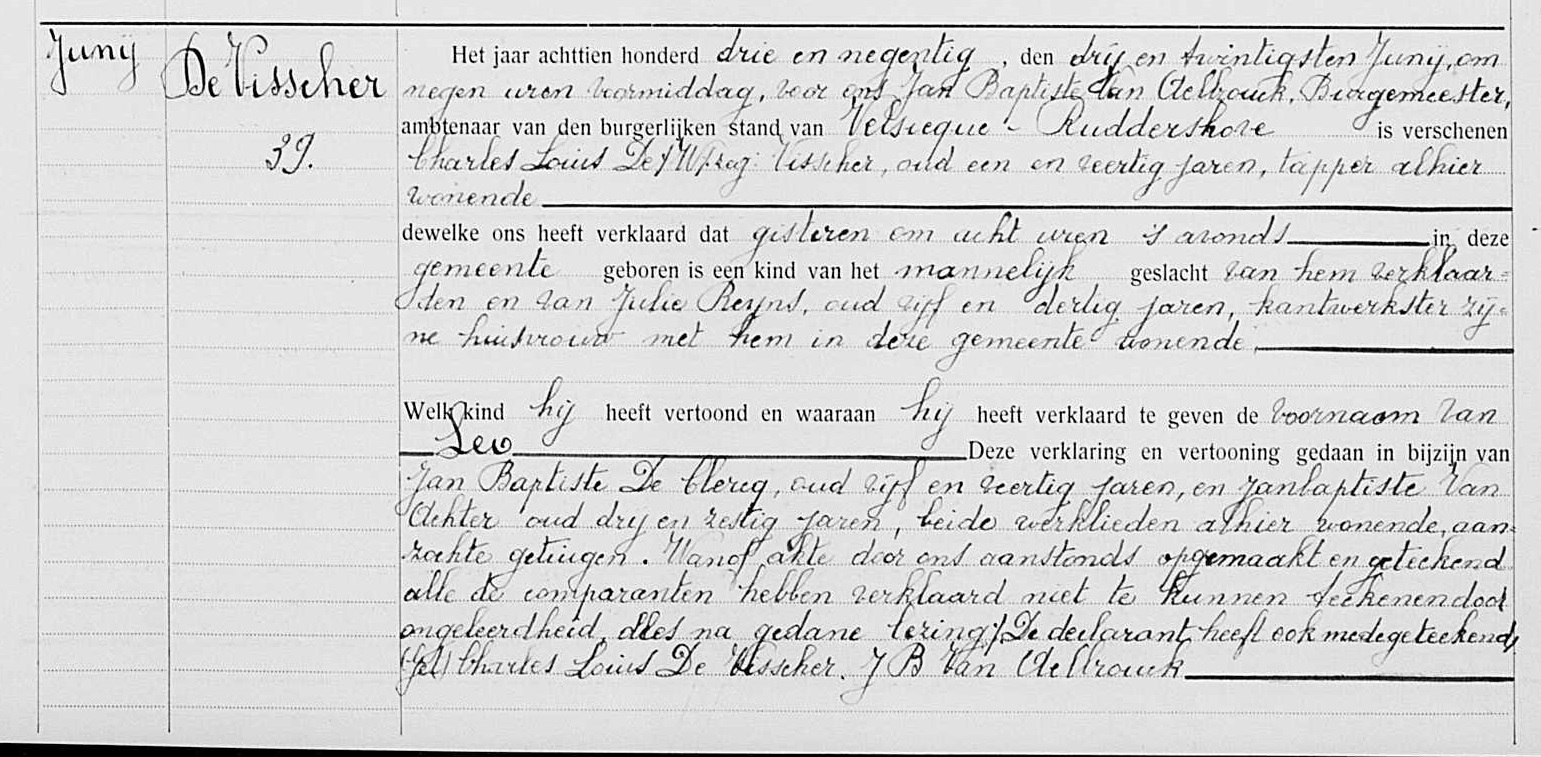 Junij
De Visscher
39.
Het jaar achttien honderd drie en negentig, den drij en twintigsten Junij, om
negen uren voormiddag, voor ons Jan Baptiste Van Aelbrouck, Burgemeester,
ambtenaar van den burgerlijken stand van Velsicque-Ruddershove is verschenen
Charles Louis De Visscher, oud een en veertig jaren, tapper alhier
wonende
dewelke ons heeft verklaard dat gisteren om acht uren 's avonds in deze
gemeente geboren is een kind van het mannelijk geslacht van hem verklaar=
den en van Julie Reyns, oud vijf en dertig jaren, kantwerkster zij=
ne huisvrouw met hem in deze gemeente wonende.
Welk kind hij heeft vertoond en waaraan hij heeft verklaard te geven de voornaam van
Leo Deze verklaring en vertooning gedaan in bijzijn van
Jan Baptiste De Clercq, oud vijf en veertig jaren, en Janbaptiste Van
Achter oud drij en zestig jaren, beide werklieden alhier wonende, aan=
zochte getuigen. Wanof akte door ons aanstonds opgemaakt en geteekend
alle de comparanten hebben verklaard niet te kunnen teekenen door
ongeleerdheid, alles na gedane lezing /. De declarant heeft ook medegeteekend,
(Get) Charles Louis De Visscher. J B Van Aelbrouck